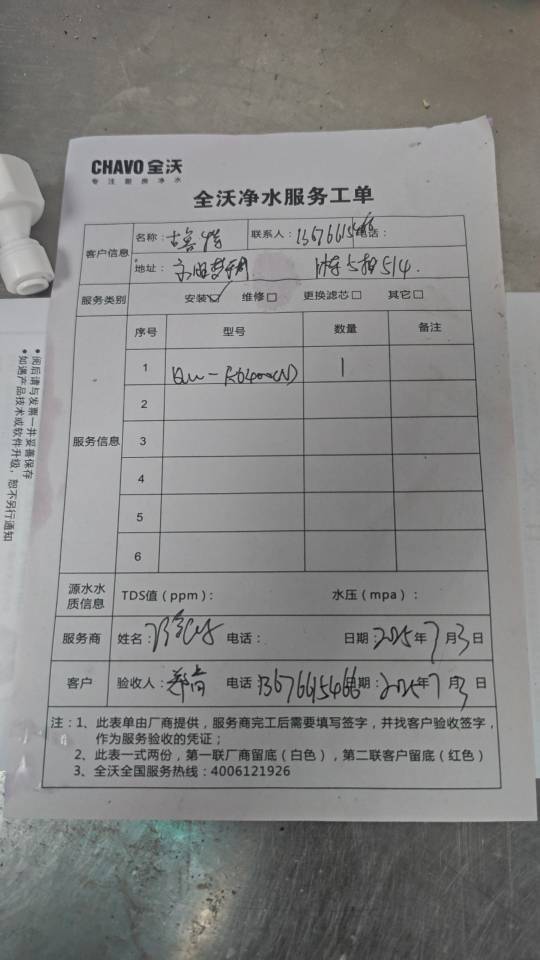 CHAVO 全沃
专注厨房净水
全沃净水服务工单
客户信息 名称：古鲁特 联系人：13676615466 电话：
地址： 514.
服务类别 安装☑ 维修□ 更换滤芯□ 其它□
服务信息 序号 型号 数量 备注
1 QW-RO400(N) 1
2
3
4
5
6
源水水质信息 TDS值（ppm）： 水压（mpa）：
服务商 姓名： 电话： 日期：2025年7月3日
客户 验收人：郑 电话 13676615466 日期：2025年7月3日
注：1、此表单由厂商提供，服务商完工后需要填写签字，并找客户验收签字，
作为服务验收的凭证；
2、此表一式两份，第一联厂商留底（白色），第二联客户留底（红色）
3、全沃全国服务热线：4006121926
•阅后请与发票一并妥善保存
•如遇产品技术或软件升级，恕不另行通知